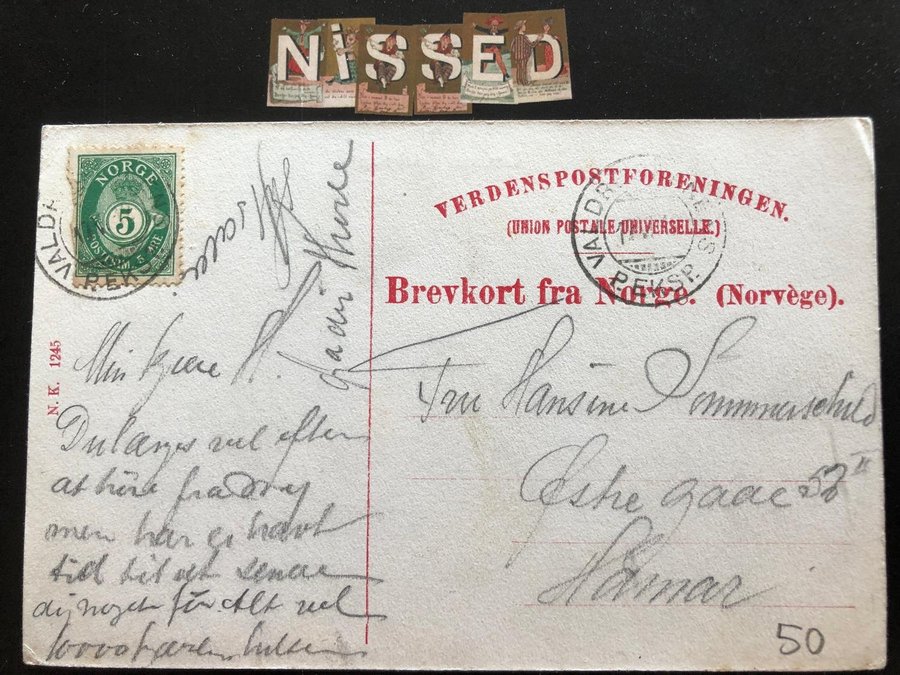 NISSED
NORGE
5
POSTFRIM. 5 ØRE
VALDR
P.EKSP.
VERDENSPOSTFORENINGEN.
(UNION POSTALE UNIVERSELLE.)
VALDR P.EKSP. S
Brevkort fra Norge. (Norvège).
N. K. 1245
Min kjære H.
Du længes vel efter
at høre fra
men har ei havt
tid til at sende
dig noget før Alt vel
1000
fra din
Fru Hansine Sommerschild
Østre gade 52 II
Hamar
50